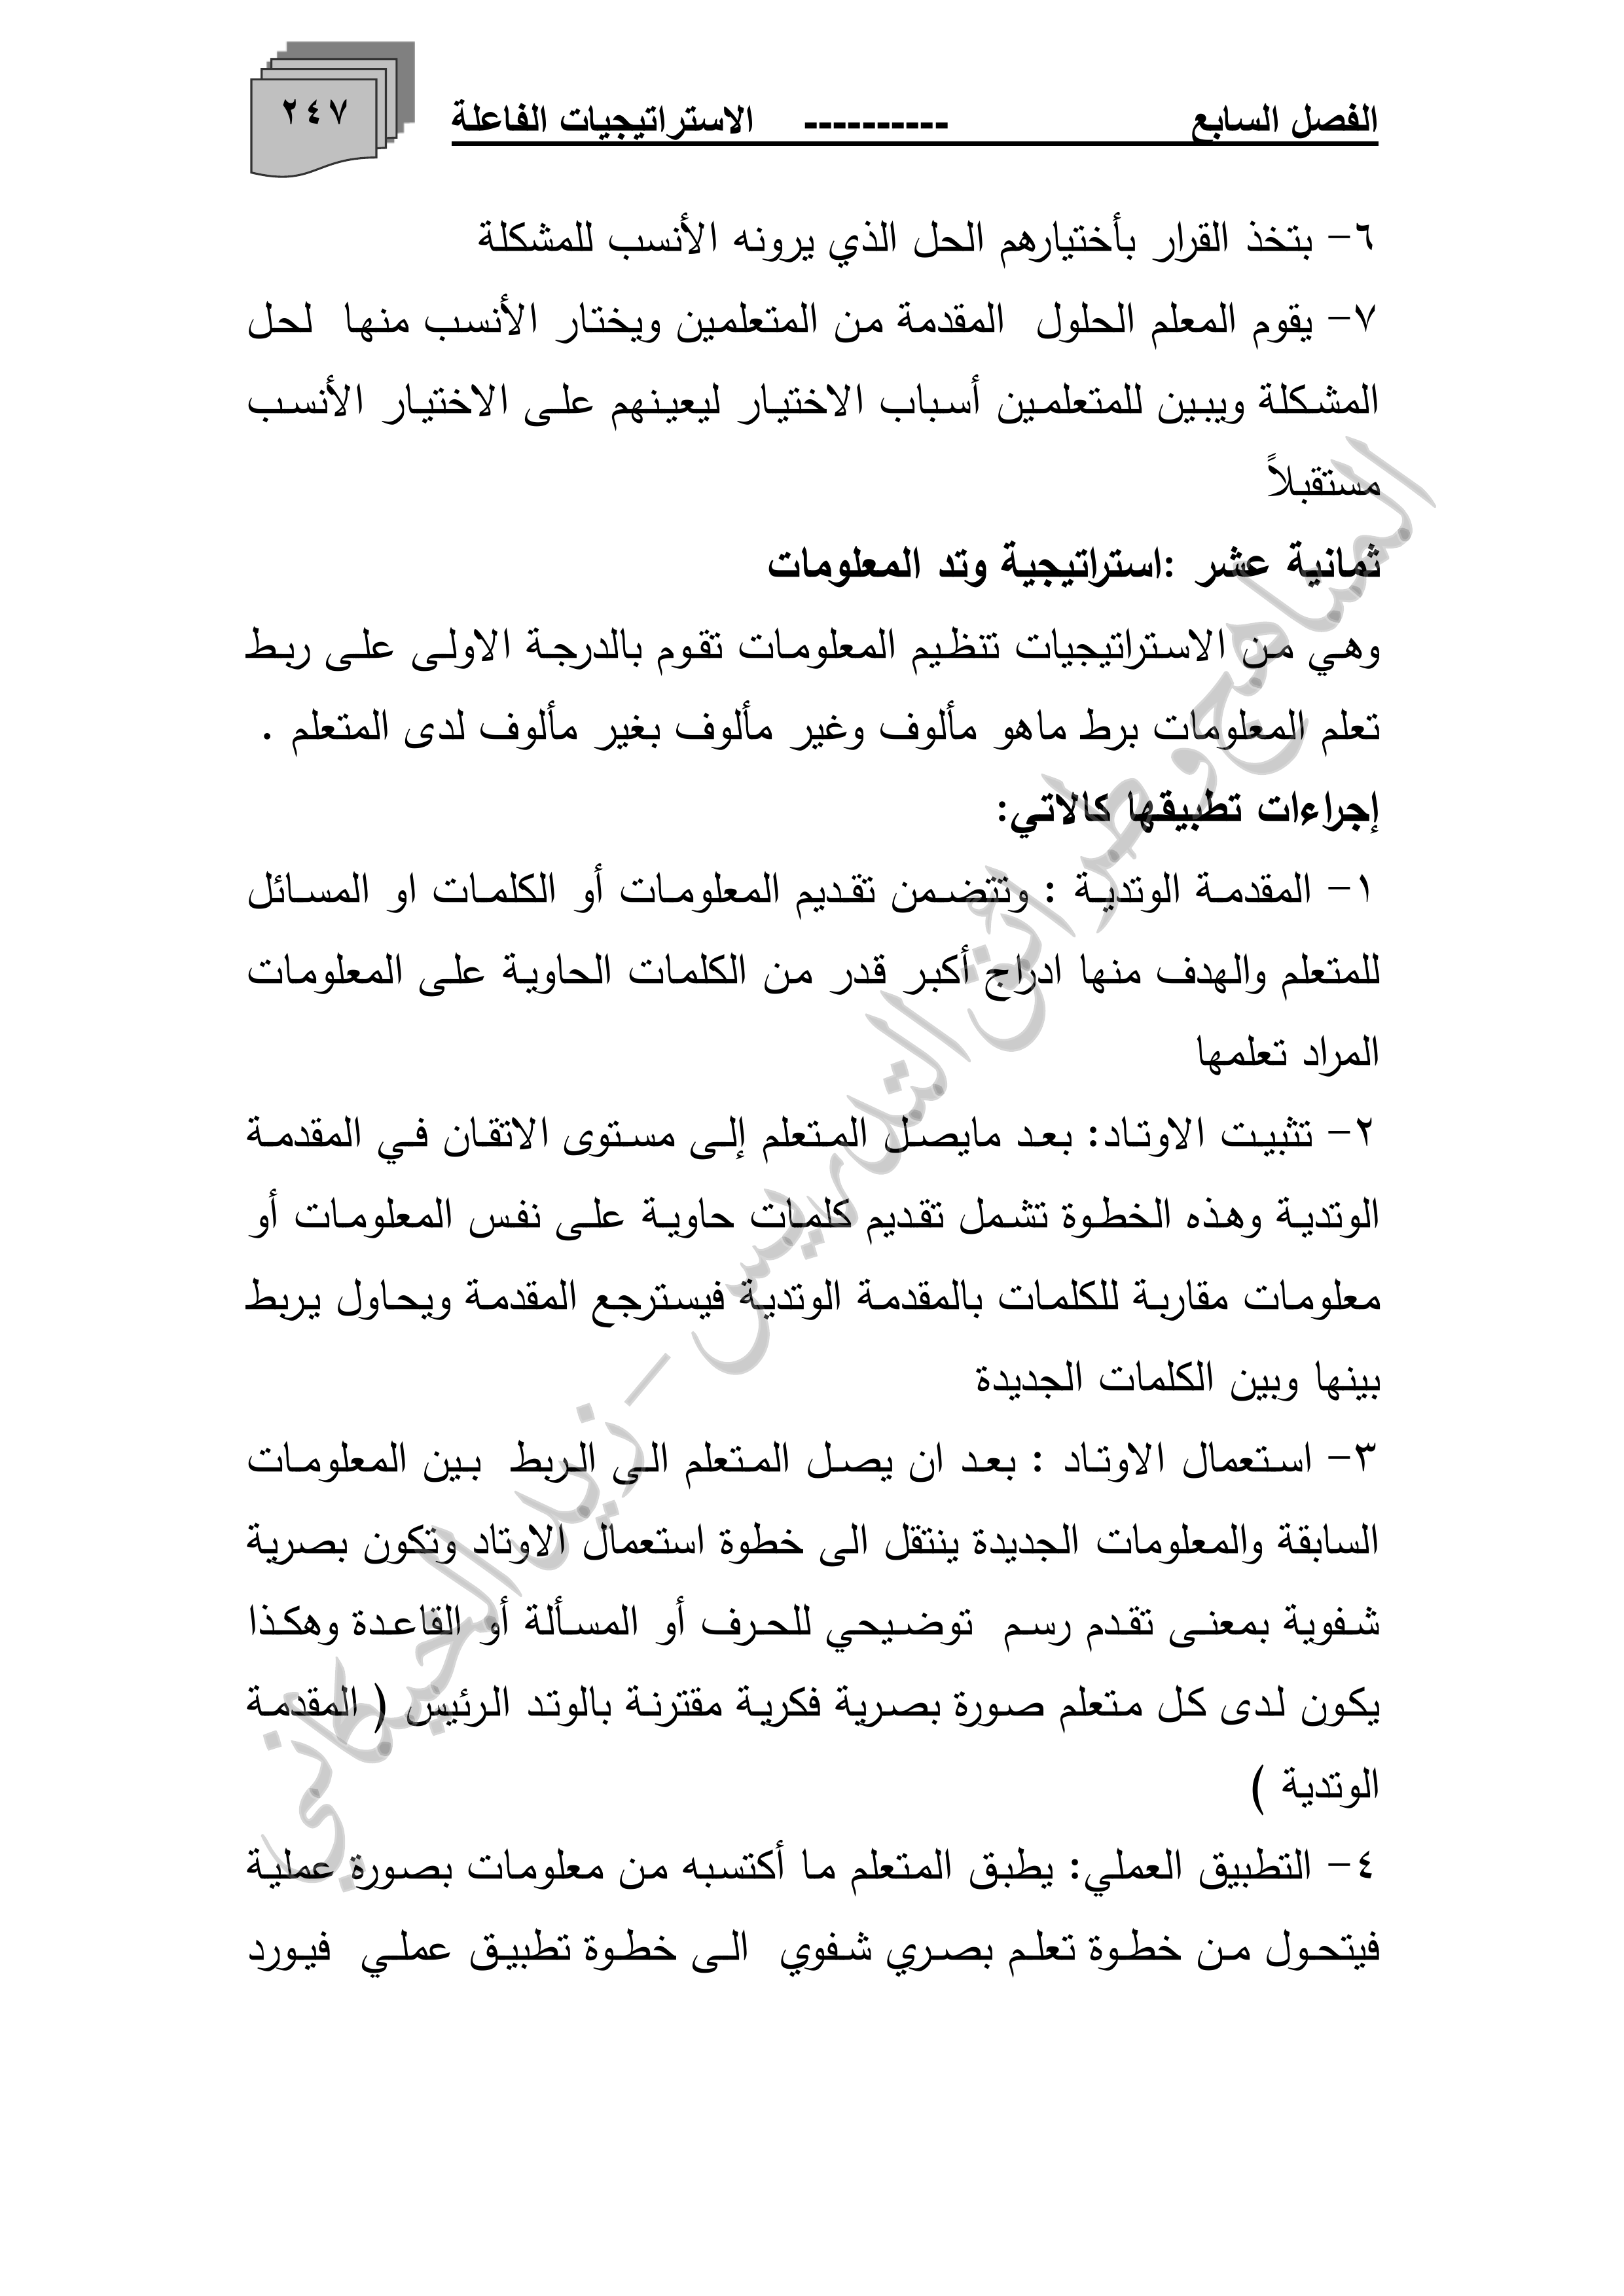 الفصل السابع ---------- الاستراتيجيات الفاعلة
٢٤٧
٦- بتخذ القرار بأختيارهم الحل الذي يرونه الأنسب للمشكلة
٧- يقوم المعلم الحلول المقدمة من المتعلمين ويختار الأنسب منها لحل
المشكلة ويبين للمتعلمين أسباب الاختيار ليعينهم على الاختيار الأنسب
مستقبلاً
ثمانية عشر :استراتيجية وتد المعلومات
وهي من الاستراتيجيات تنظيم المعلومات تقوم بالدرجة الاولى على ربط
تعلم المعلومات برط ماهو مألوف وغير مألوف بغير مألوف لدى المتعلم .
إجراءات تطبيقها كالاتي:
١- المقدمة الوتدية : وتتضمن تقديم المعلومات أو الكلمات او المسائل
للمتعلم والهدف منها ادراج أكبر قدر من الكلمات الحاوية على المعلومات
المراد تعلمها
٢- تثبيت الاوتاد: بعد مايصل المتعلم إلى مستوى الاتقان في المقدمة
الوتدية وهذه الخطوة تشمل تقديم كلمات حاوية على نفس المعلومات أو
معلومات مقاربة للكلمات بالمقدمة الوتدية فيسترجع المقدمة ويحاول يربط
بينها وبين الكلمات الجديدة
٣- استعمال الاوتاد : بعد ان يصل المتعلم الى الربط بين المعلومات
السابقة والمعلومات الجديدة ينتقل الى خطوة استعمال الاوتاد وتكون بصرية
شفوية بمعنى تقدم رسم توضيحي للحرف أو المسألة أو القاعدة وهكذا
يكون لدى كل متعلم صورة بصرية فكرية مقترنة بالوتد الرئيس ( المقدمة
الوتدية )
٤- التطبيق العملي: يطبق المتعلم ما أكتسبه من معلومات بصورة عملية
فيتحول من خطوة تعلم بصري شفوي الى خطوة تطبيق عملي فيورد
المناهج وطرائق التدريس - زيد الحيكاني